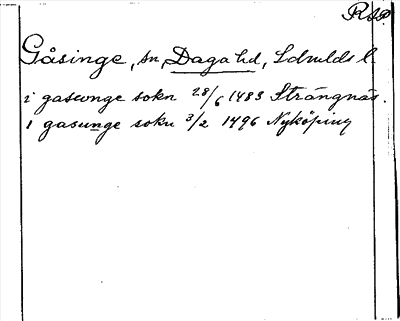 RAP.
Gåsinge, sn, Daga hd, Sdmlds l.
i gaseonge sokn 28/6 1483 Strängnäs.
I gasunge sokn 3/2 1496 Nyköping